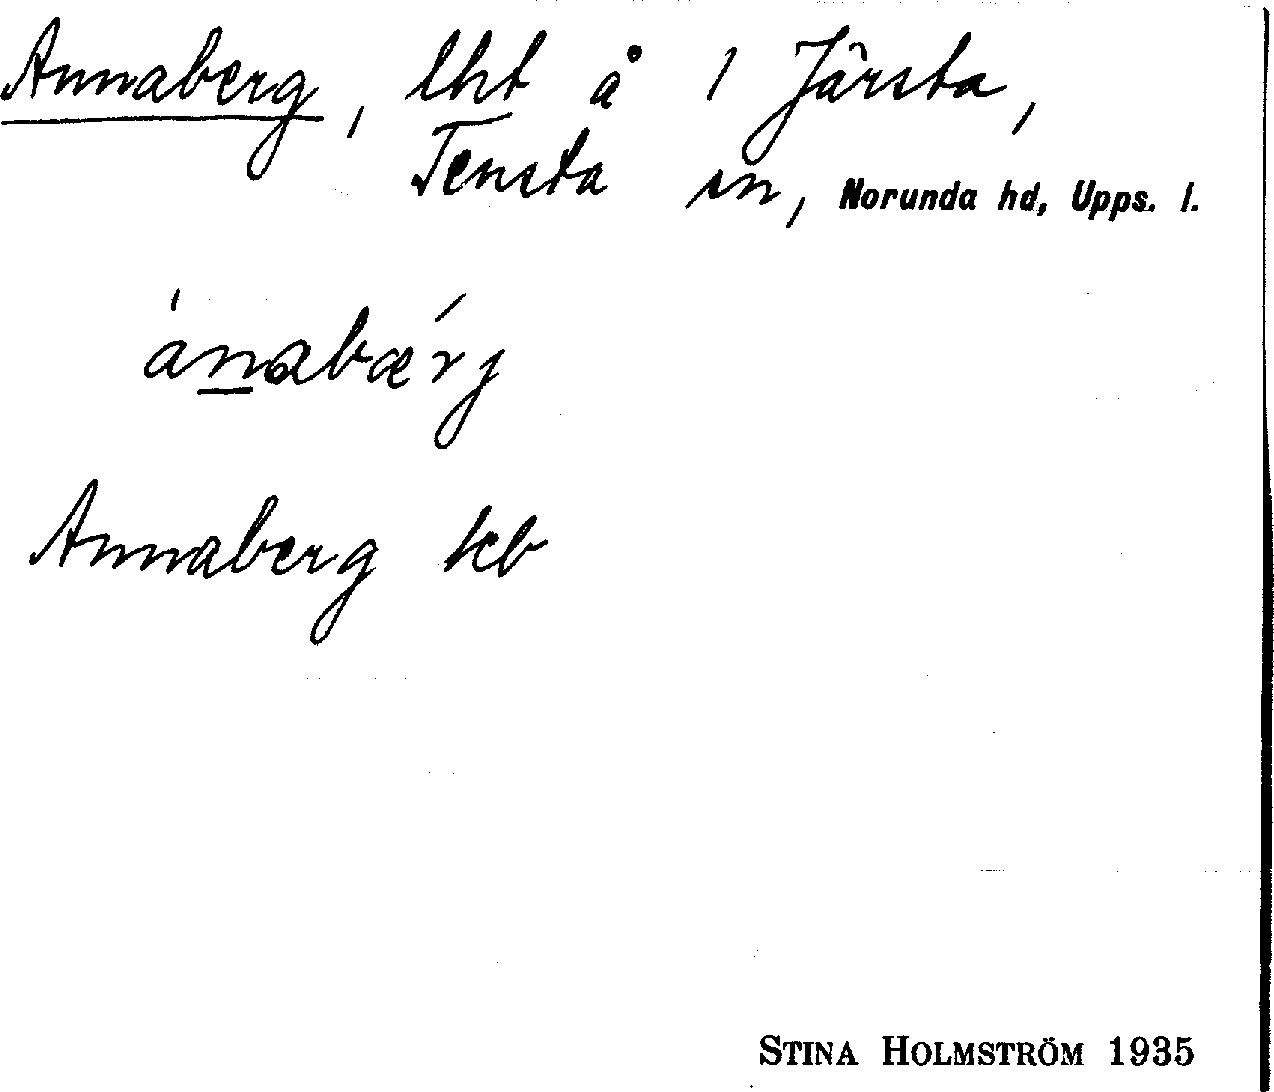 Annaberg, lht å 1 Järsta,
Tensta sn, Norunda hd, Upps. l.
ánabǽrj
Annaberg kb
STINA HOLMSTRÖM 1935